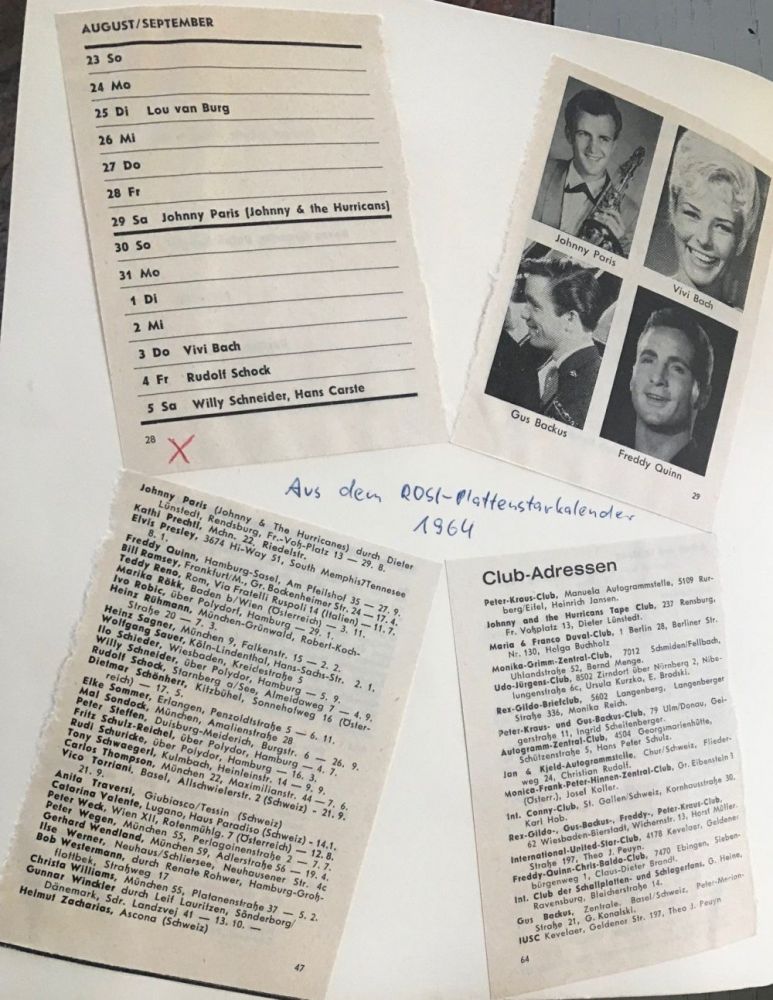 AUGUST/SEPTEMBER
23 So
24 Mo
25 Di Lou van Burg
26 Mi
27 Do
28 Fr
29 Sa Johnny Paris (Johnny & the Hurricans)
30 So
31 Mo
1 Di
2 Mi
3 Do Vivi Bach
4 Fr Rudolf Schock
5 Sa Willy Schneider, Hans Carste
28
X
Johnny Paris
Vivi Bach
Gus Backus
Freddy Quinn
29
Aus dem ROSI-Plattenstarkalender
1964
Johnny Paris (Johnny & The Hurricanes) durch Dieter
Lünstedt, Rendsburg, Fr.-Voß-Platz 13 — 29. 8.
Kathi Prechtl, Mchn. 22, Riedelstr.
Elvis Presley, 3674 Hi-Way 51, South Memphis7Tennesee
8. 1.
Freddy Quinn, Hamburg-Sasel, Am Pfeilshof 35 — 27. 9.
Bill Ramsey, Frankfurt/M., Gr. Bockenheimer Str. 24 — 17. 4.
Teddy Reno, Rom, Via Fratelli Ruspoli 14 (Italien) — 11. 7.
Marika Rökk, Baden b/Wien (Österreich) — 3. 11.
Ivo Robic, über Polydor, Hamburg — 29. 1.
Heinz Rühmann, München-Grünwald, Robert-Koch-
Straße 20 — 7. 3.
Heinz Sagner, München 9, Falkenstr. 15 — 2. 2.
Wolfgang Sauer, Köln-Lindenthal, Hans-Sachs-Str. 2. 1.
Ilo Schieder, Wiesbaden, Kreiclestraße 5
Willy Schneider, über Polydor, Hamburg — 5. 9.
Rudolf Schock, Starnberg a/See, Almeidaweg 7 — 4. 9.
Dietmar Schönherr, Kitzbühel, Sonnehofweg 16 (Öster-
reich) — 17. 5.
Elke Sommer, Erlangen, Penzoldtstraße 5 — 6. 11.
Mal Sondock, München, Amalienstraße 28
Peter Steffen, Duisburg-Meiderich, Burgstr. 6 — 26. 9.
Fritz Schulz-Reichel, über Polydor, Hamburg — 4. 7.
Rudi Schuricke, über Polydor, Hamburg — 16. 3.
Tony Schwaegerl, Kulmbach, Heinleinstr. 14 — 9. 9.
Carlos Thompson, München 22, Maximilianstr. 44 — 7. 6.
Vico Torriani, Basel, Allschwielerstr. 2 (Schweiz) - 21. 9.
21. 9.
Anita Traversi, Giubiasco/Tessin (Schweiz)
Catarina Valente, Lugano, Haus Paradiso (Schweiz) - 14.1.
Peter Weck, Wien XII, Rotenmühlg. 7 (Österreich) — 12. 8.
Peter Wegen, München 55, Perlagoinenstraße 2 — 7. 7.
Gerhard Wendland, München 59, Adlerstraße 56 — 19. 4.
Ilse Werner, Neuhaus/Schliersee, Neuhausener Str. 4c
Bob Westermann, durch Renate Rohwer, Hamburg-Groß-
flottbek, Straßweg 17
Christa Williams, München 55, Platanenstraße 37 — 5. 2.
Gunnar Winckler durch Leif Lauritzen, Sönderborg/
Dänemark, Sdr. Landzvej 41 — 13. 10. —
Helmut Zacharias, Ascona (Schweiz)
47
Club-Adressen
Peter-Kraus-Club, Manuela Autogrammstelle, 5109 Rur-
berg/Eifel, Heinrich Jansen.
Johnny and the Hurricans Tape Club, 237 Rensburg,
Fr. Voßplatz 13, Dieter Lünstedt.
Maria & Franco Duval-Club, 1 Berlin 28, Berliner Str.
Nr. 130, Helga Buchholz
Monika-Grimm-Zentral-Club, 7012 Schmiden/Fellbach,
Uhlandstraße 52, Bernd Menge.
Udo-Jürgens-Club, 8502 Zirndorf über Nürnberg 2, Nibe-
lungenstraße 6c, Ursula Kurzka, E. Brodski.
Rex-Gildo-Briefclub, 5602 Langenberg, Langenberger
Straße 336, Monika Reich.
Peter-Kraus- und Gus-Backus-Club, 79 Ulm/Donau, Gei-
gerstraße 11, Ingrid Scheitenberger.
Autogramm-Zentral-Club, 4504 Georgsmarienhütte,
Schützenstraße 5, Hans Peter Schulz.
Jan & Kjeld-Autogrammstelle, Chur/Schweiz, Flieder-
weg 24, Christian Rudolf.
Monica-Frank-Peter-Hinnen-Zentral-Club, Gr. Eibenstein 3
(Österr.), Josef Koller.
Int. Conny-Club, St. Gallen/Schweiz, Kornhausstraße 30,
Karl Hob.
Rex-Gildo-, Gus-Backus-, Freddy-, Peter-Kraus-Club,
62 Wiesbaden-Bierstadt, Wichernstr. 13, Horst Möller.
International-United-Star-Club, 4178 Kevelaer, Geldener
Straße 197, Theo J. Peuyn.
Freddy-Quinn-Chris-Baldo-Club, 7470 Ebingen, Sieben-
bürgenweg 1, Claus-Dieter Brandl.
Int. Club der Schallplatten- und Schlagerfans, G. Heine,
Ravensburg, Bleicherstraße 14.
Gus Backus, Zentrale, Basel/Schweiz, Peter-Merian-
Straße 21, G. Konalski.
IUSC Kevelaer, Geldenor Str. 197, Theo J. Peuyn
64